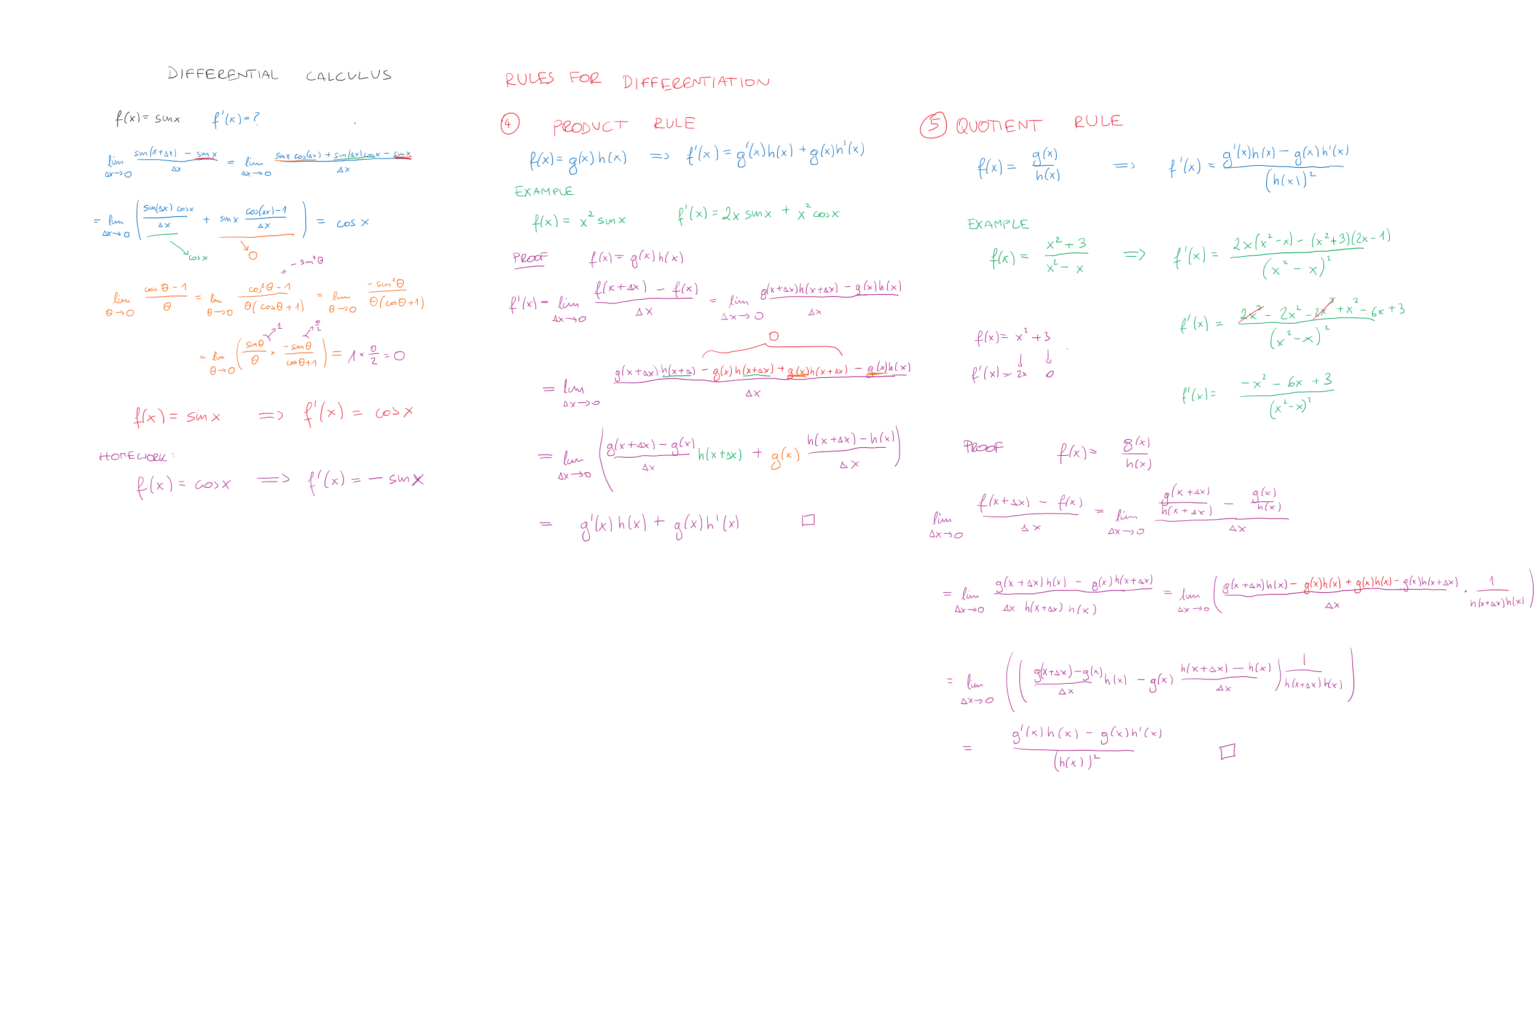 DIFFERENTIAL CALCULUS
f(x) = sin x f'(x) = ?
lim Δx→0 (sin(x+Δx) - sin x)/Δx = lim Δx→0 (sin x cos(Δx) + sin(Δx) cos x - sin x)/Δx
= lim Δx→0 ( (sin(Δx) cos x)/Δx + sin x (cos(Δx)-1)/Δx ) = cos x
cos x 0
- sin²θ
lim θ→0 (cos θ - 1)/θ = lim θ→0 (cos²θ - 1)/(θ(cos θ + 1)) = lim θ→0 (-sin²θ)/(θ(cos θ + 1))
1 0/2
= lim θ→0 ( (sin θ)/θ × (-sin θ)/(cos θ + 1) ) = 1 × 0/2 = 0
f(x) = sin x ⟹ f'(x) = cos x
HOMEWORK:
f(x) = cos x ⟹ f'(x) = - sin x
RULES FOR DIFFERENTIATION
④ PRODUCT RULE
f(x) = g(x) h(x) ⟹ f'(x) = g'(x) h(x) + g(x) h'(x)
EXAMPLE
f(x) = x² sin x f'(x) = 2x sin x + x² cos x
PROOF f(x) = g(x) h(x)
f'(x) = lim Δx→0 (f(x+Δx) - f(x))/Δx = lim Δx→0 (g(x+Δx)h(x+Δx) - g(x)h(x))/Δx
0
= lim Δx→0 (g(x+Δx) h(x+Δx) - g(x)h(x+Δx) + g(x)h(x+Δx) - g(x)h(x))/Δx
= lim Δx→0 ( (g(x+Δx) - g(x))/Δx h(x+Δx) + g(x) (h(x+Δx) - h(x))/Δx )
= g'(x) h(x) + g(x) h'(x) □
⑤ QUOTIENT RULE
f(x) = g(x)/h(x) ⟹ f'(x) = (g'(x)h(x) - g(x)h'(x))/(h(x))²
EXAMPLE
f(x) = (x² + 3)/(x² - x) ⟹ f'(x) = (2x(x² - x) - (x² + 3)(2x - 1))/(x² - x)²
f'(x) = (2x³ - 2x² - 2x³ + x² - 6x + 3)/(x² - x)²
f(x) = x² + 3
f'(x) = 2x 0
f'(x) = (-x² - 6x + 3)/(x² - x)²
PROOF f(x) = g(x)/h(x)
lim Δx→0 (f(x+Δx) - f(x))/Δx = lim Δx→0 (g(x+Δx)/h(x+Δx) - g(x)/h(x))/Δx
= lim Δx→0 (g(x+Δx)h(x) - g(x)h(x+Δx))/(Δx h(x+Δx) h(x)) = lim Δx→0 ( (g(x+Δx)h(x) - g(x)h(x) + g(x)h(x) - g(x)h(x+Δx))/Δx · 1/(h(x+Δx)h(x)) )
= lim Δx→0 ( ( (g(x+Δx) - g(x))/Δx h(x) - g(x) (h(x+Δx) - h(x))/Δx ) 1/(h(x+Δx)h(x)) )
= (g'(x) h(x) - g(x) h'(x))/(h(x))² □